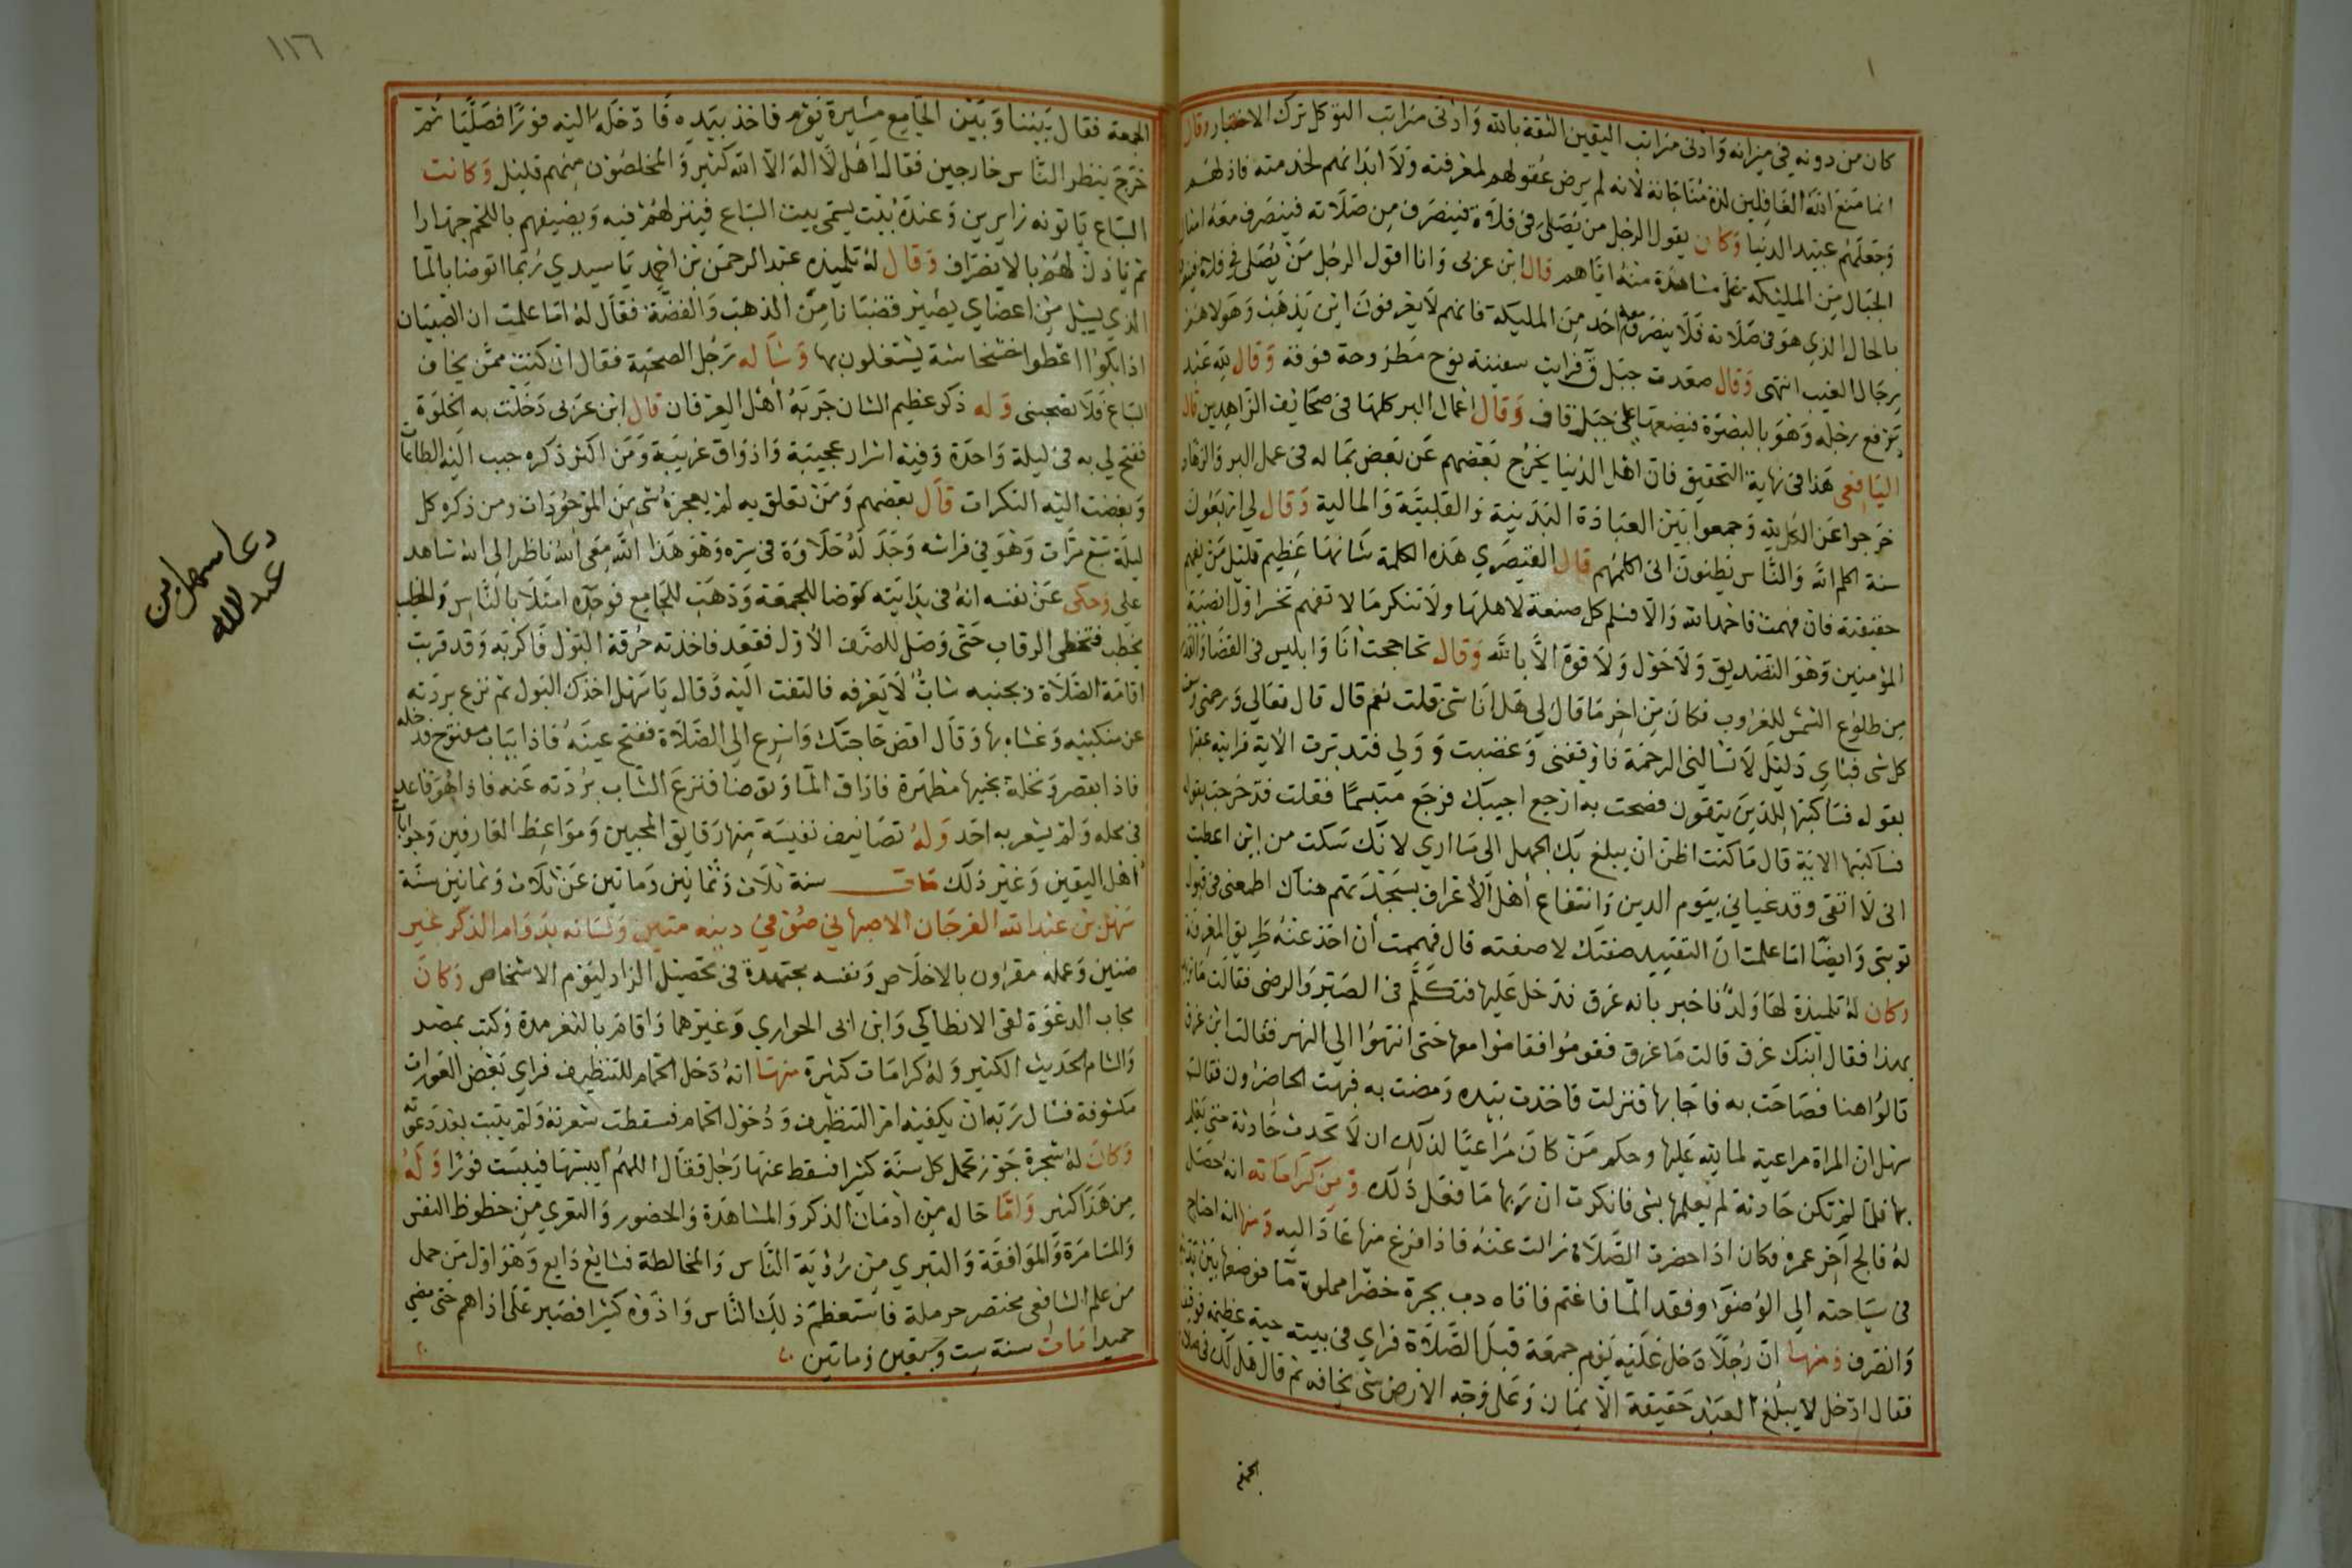 كان من دونه في ميزانه وادنى مراتب اليقين الثقة بالله وادنى مراتب التوكل ترك الاختيار وقال
انما منع الله الغافلين لذة مناجاته لانه لم يرض عقولهم لمعرفته ولا ابدانهم لخدمته فاذلهم
وجعلهم عبيد الدنيا وكان يقول الرجل من يصلى فى فلاة فينصرف من صلاته فينصرف معه امثال
الجبال من المليكه على مشاهدة منه اياهم قال ابن عربى وانا اقول الرجل من يصلى في فلاة
بالحال الذي هو فى صلاته فلا ينصرف معه احد من المليكة فانهم لا يعرفون اين يذهب وهولا هم
رجال الغيب انتهى وقال صعدت جبل ق فرايت سفينة نوح مطروحة فوقه وقال لله عبد
يرفع رجله وهو بالبصرة فيضعها على جبل قاف وقال اعمال البر كلها فى صحايف الزاهدين قال
اليافعي هذا فى نهاية التحقيق فان اهل الدنيا يخرج بعضهم عن بعض بماله فى عمل البر والزهاد
خرجوا عن الكل لله وجمعوا بين العبادة البدنية والقلبية والمالية وقال لي اربعون
سنة اكلم الله والناس يظنون انى اكلمهم قال القيصري هذه الكلمة شانها عظيم قليل من يفهم
حقيقته فان فهمت فاحمد الله والا فسلم كل صنعة لاهلها ولا تنكر ما لا تفهم تخسر اول انصبة
المؤمنين وهو التصديق ولا حول ولا قوة الا بالله وقال تحاججت انا وابليس فى القضا
من طلوع الشمس للغروب فكان من اخر ما قال لي هل انا شى قلت نعم قال قال تعالى ورحمتى وسعت
كل شى فباي دليل لا تسالنى الرحمة فاوقفنى وغضبت وولى فتدبرت الاية فرايته عقبها
بقوله فساكتبها للذين يتقون فصحت به ارجع اجيبك فرجع متبسما فقلت قد خرجت بقوله
فساكتبها الاية قال ما كنت اظن ان يبلغ بك الجهل الى ما ارى لانك سكت من اين اعطيت
انى لا اتقى وقد غيانى بيوم الدين وانتفاع اهل الاعراف بسجدتهم هناك اطمعنى فى قبول
توبتى وايضا اما علمت ان التقييد صفتك لا صفته قال فهممت أن اخذ عنه طريق المعرفة
وكان له تلميذة لها ولد فاخبر بانه غرق فدخل عليها فتكلم فى الصبر والرضى فقالت ما تريد
بهذا فقال ابنك غرق قالت ما غرق فقوموا فقاموا معها حتى انتهوا الى النهر فقالت اين غرق
قالوا هنا فصاحت به فاجابها فنزلت فاخذت بيده ومضت به فبهت الحاضرون فقال
سهل ان المراة مراعية لما لله عليها وحكم من كان مراعيا لذلك ان لا تحدث حادثة حتى يعلم
بها فلما لم تكن حادثة لم يعلمها بشى فانكرت ان ربها ما فعل ذلك ومن كراماته انه حصل
له فالج آخر عمره فكان اذا حضرت الصلاة زالت عنه فاذا فرغ منها عاد اليه ومنها انه احتاج
فى سياحته الى الوضوء وفقد الما فاغتم فاتاه دب بجرة خضرا مملوة ما فوضعها بين يديه
وانصرف ومنها ان رجلا دخل عليه يوم جمعة قبل الصلاة فراي فى بيته حية عظيمة فوقف
فقال ادخل لا يبلغ العبد حقيقة الايمان وعلى وجه الارض شى يخافه ثم قال هل لك فى صلاة
الجمعة
١١٦
الجمعة فقال بيننا وبين الجامع مسيرة يوم فاخذ بيده فادخله اليه فورا فصليا ثم
خرج ينظر الناس خارجين فقال اهل لا اله الا الله كثير والمخلصون منهم قليل وكانت
السباع ياتونه زايرين وعنده بيت يسمى بيت السباع فينزلهم فيه ويضيفهم باللحم جهارا
ثم ياذن لهم بالانصراف وقال له تلميذه عبد الرحمن بن احمد يا سيدي ربما اتوضا بالما
الذي يسيل من اعضاي يصير قضبانا من الذهب والفضة فقال له اما علمت ان الصبيان
اذا بكوا اعطوا خشخاشة يشتغلون بها وساله رجل الصحبة فقال ان كنت ممن يخاف
السباع فلا تصحبنى وله ذكر عظيم الشان جربه أهل العرفان قال ابن عربى دخلت به الخلوة
ففتح لي به فى ليلة واحدة وفيه اسرار عجيبة واذواق غريبة ومن اكثر ذكره حبب اليه الطاعات
وبغضت اليه النكرات قال بعضهم ومن تعلق به لم يعجزه شى من الموجودات ومن ذكره كل
ليلة سبع مرات وهو في فراشه وجد له حلاوة فى سره وهو هذا الله معى الله ناظر الى الله شاهد
على وحكى عن نفسه انه فى بدايته توضا للجمعة وذهب للجامع فوجده امتلا بالناس والخطيب
يخطب فتخطى الرقاب حتى وصل للصف الاول فقعد فاخذته حرقة البول فاكربه وقد قربت
اقامة الصلاة وبجنبه شاب لا يعرفه فالتفت اليه وقال يا سهل اخذك البول ثم نزع بردته
عن منكبيه وغشاه بها وقال اقض حاجتك واسرع الى الصلاة ففتح عينه فاذا بباب مفتوح فدخله
فاذا بقصر ونخلة بجنبها مطهرة فاراق الما وتوضا فنزع الشاب بردته عنه فاذا هو قاعد
فى محله ولم يشعر به احد وله تصانيف نفيسة منها رقايق المحبين ومواعظ العارفين وجوابات
أهل اليقين وغير ذلك مات سنة ثلاث وثمانين وماتين عن ثلاث وثمانين سنة
سهل بن عبد الله الفرجان الاصبهاني صوفي دينه متين ولسانه بدوام الذكر غير
ضنين وعمله مقرون بالاخلاص ونفسه مجتهدة فى تحصيل الزاد ليوم الاشخاص وكان
مجاب الدعوة لقى الانطاكي وابن ابى الحواري وغيرهما واقام بالثغر مدة وكتب بمصر
والشام الحديث الكثير وله كرامات كثيرة منها انه دخل الحمام للتنظيف فراي بعض العورات
مكشوفة فسال ربه ان يكفيه امر التنظيف ودخول الحمام فسقطت شعرته ولم يثبت بعد دعوته
وكان له شجرة جوز تحمل كل سنة كثيرا فسقط عنها رجل فقال اللهم ايبسها فيبست فورا وله
من هذا كثير واما حاله من ادمان الذكر والمشاهدة والحضور والتعري من حظوظ النفس
والمسامرة والموافقة والتبري من رؤية الناس والمخالطة فشايع ذايع وهو اول من حمل
من علم الشافعى مختصر حرملة فاستعظم ذلك الناس واذوه كثيرا فصبر على اذاهم حتى مضي
حميدا مات سنة ست وسبعين وماتين
دعا سهل بن
عبد الله